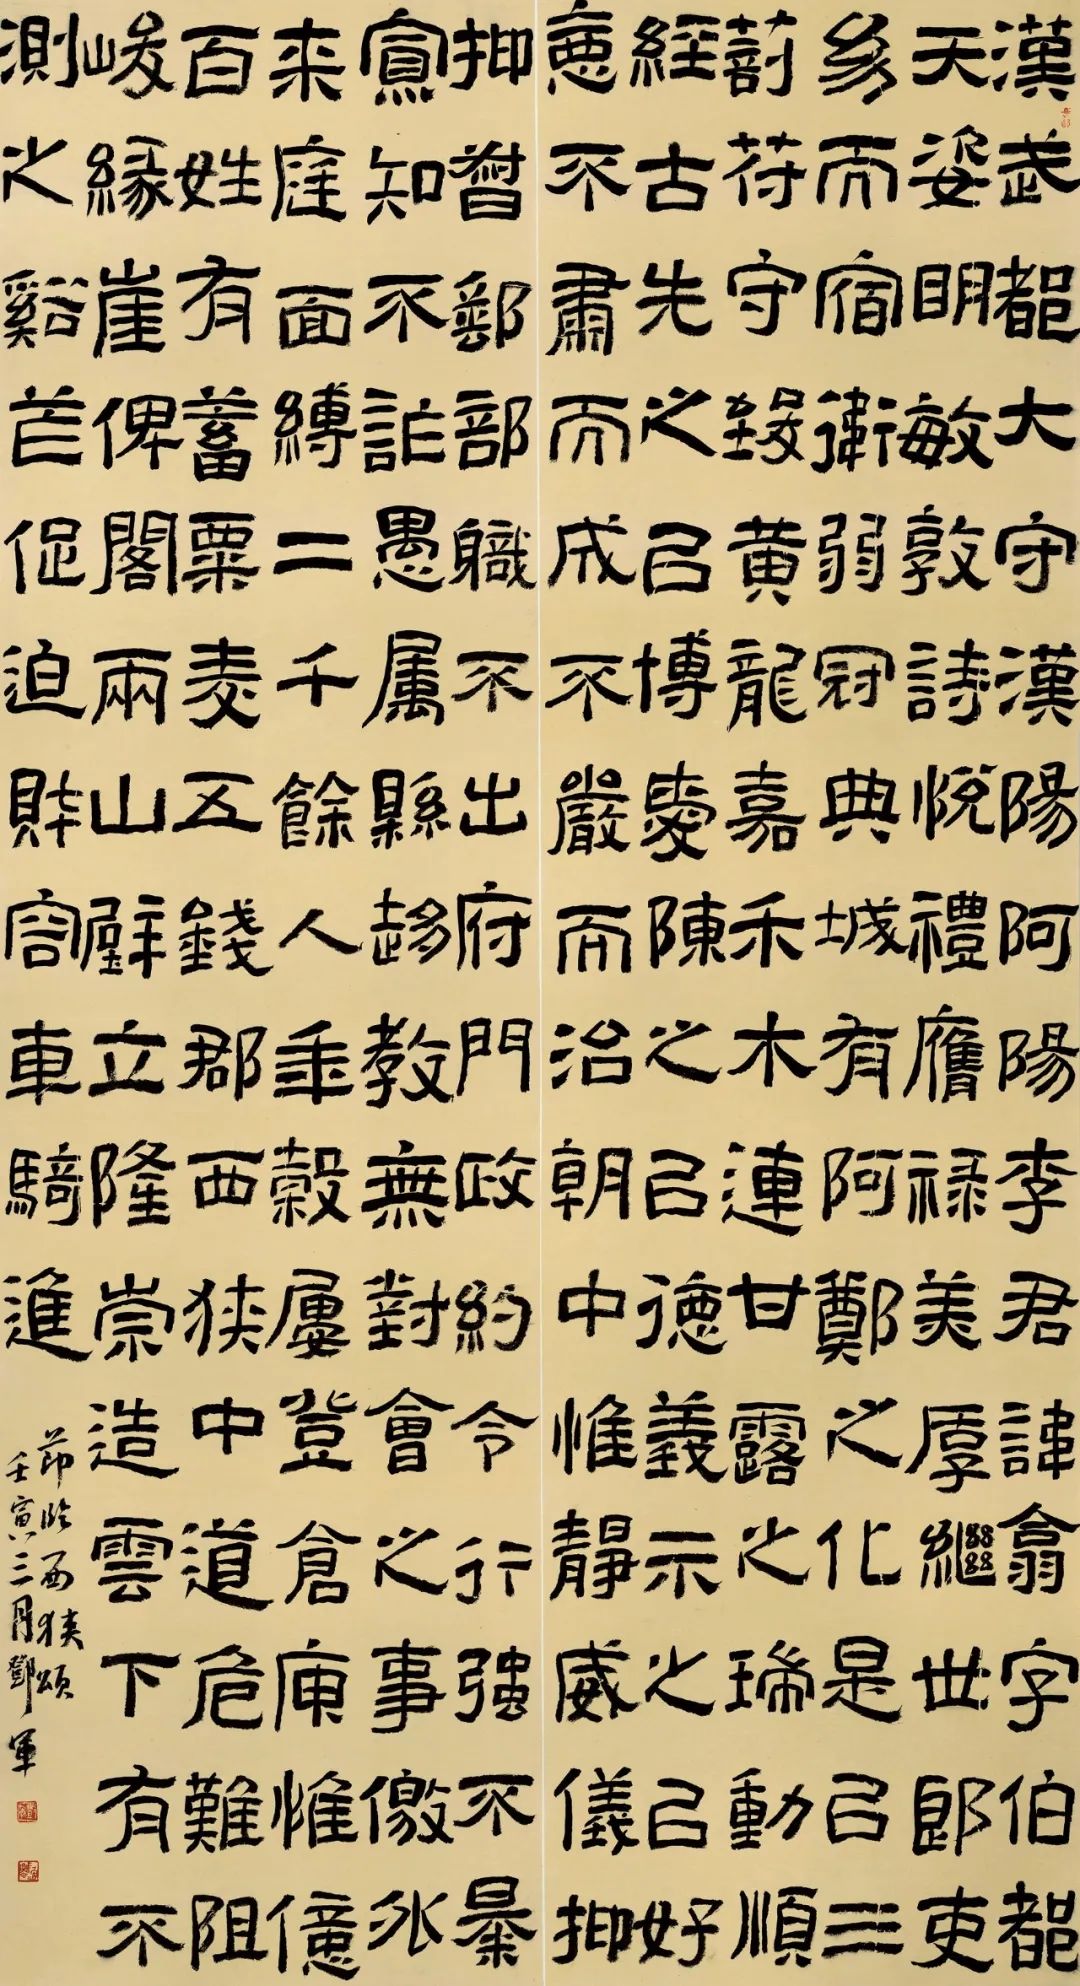 漢武都大守漢陽阿陽李君諱翕字伯都
天姿明敏敦詩悅禮膺祿美厚繼世郎吏
幼而宿衛弱冠典城有阿鄭之化是㠯三
剖符守致黃龍嘉禾木連甘露之瑞動順
經古先之㠯博愛陳之㠯德義示之㠯好
惡不肅而成不嚴而治朝中惟靜威儀抑
抑督郵部職不出府門政約令行强不暴
寡知不詐愚属縣趍教無對會之事儌外
来庭面縛二千餘人年穀屢登倉庾惟億
百姓有蓄粟麦五錢郡西狹中道危難阻
峻緣崖俾閣兩山壁立隆崇造雲下有不
測之谿芒促迫財容車騎進
節臨西狹頌
壬寅三月鄧軍